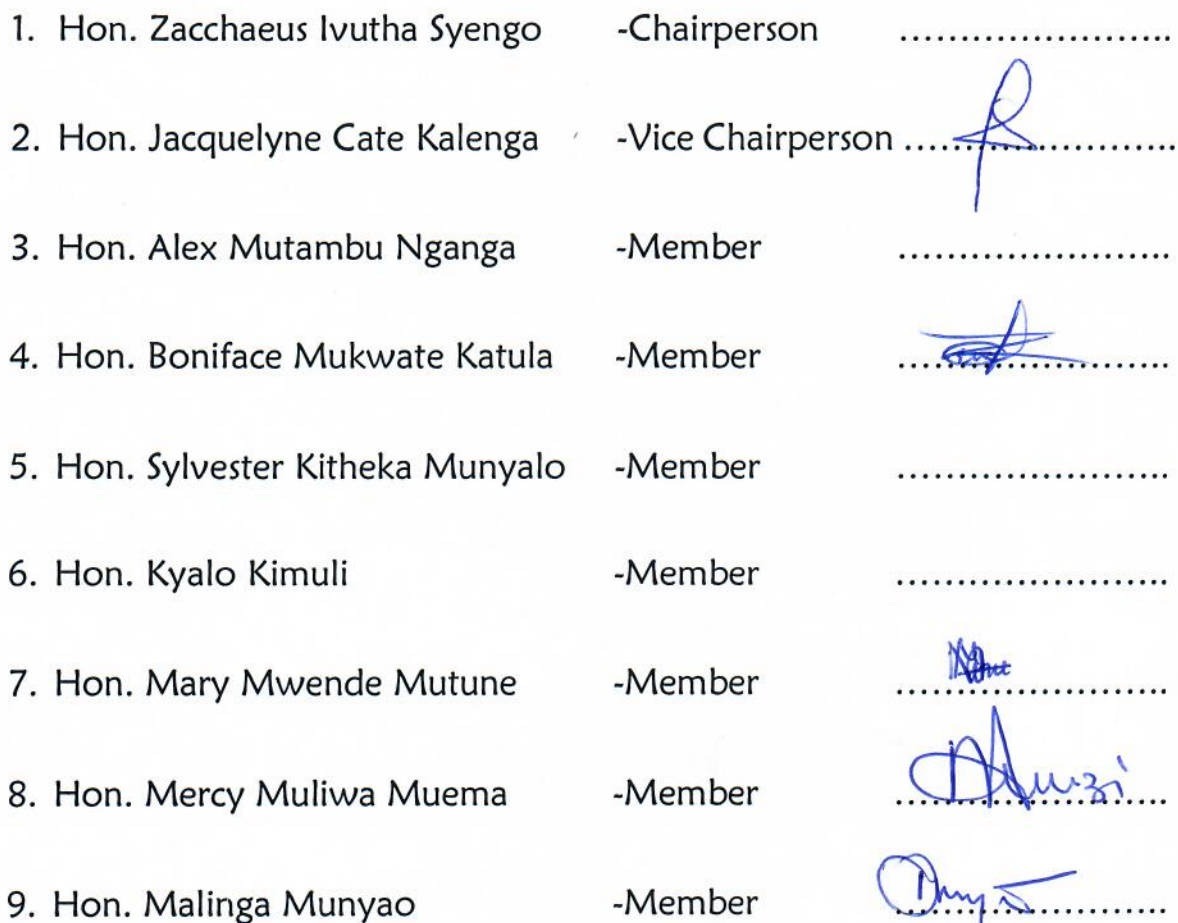 1. Hon. Zacchaeus Ivutha Syengo -Chairperson ........................
2. Hon. Jacquelyne Cate Kalenga -Vice Chairperson ........................
3. Hon. Alex Mutambu Nganga -Member ........................
4. Hon. Boniface Mukwate Katula -Member ........................
5. Hon. Sylvester Kitheka Munyalo -Member ........................
6. Hon. Kyalo Kimuli -Member ........................
7. Hon. Mary Mwende Mutune -Member ........................
8. Hon. Mercy Muliwa Muema -Member ........................
9. Hon. Malinga Munyao -Member ........................